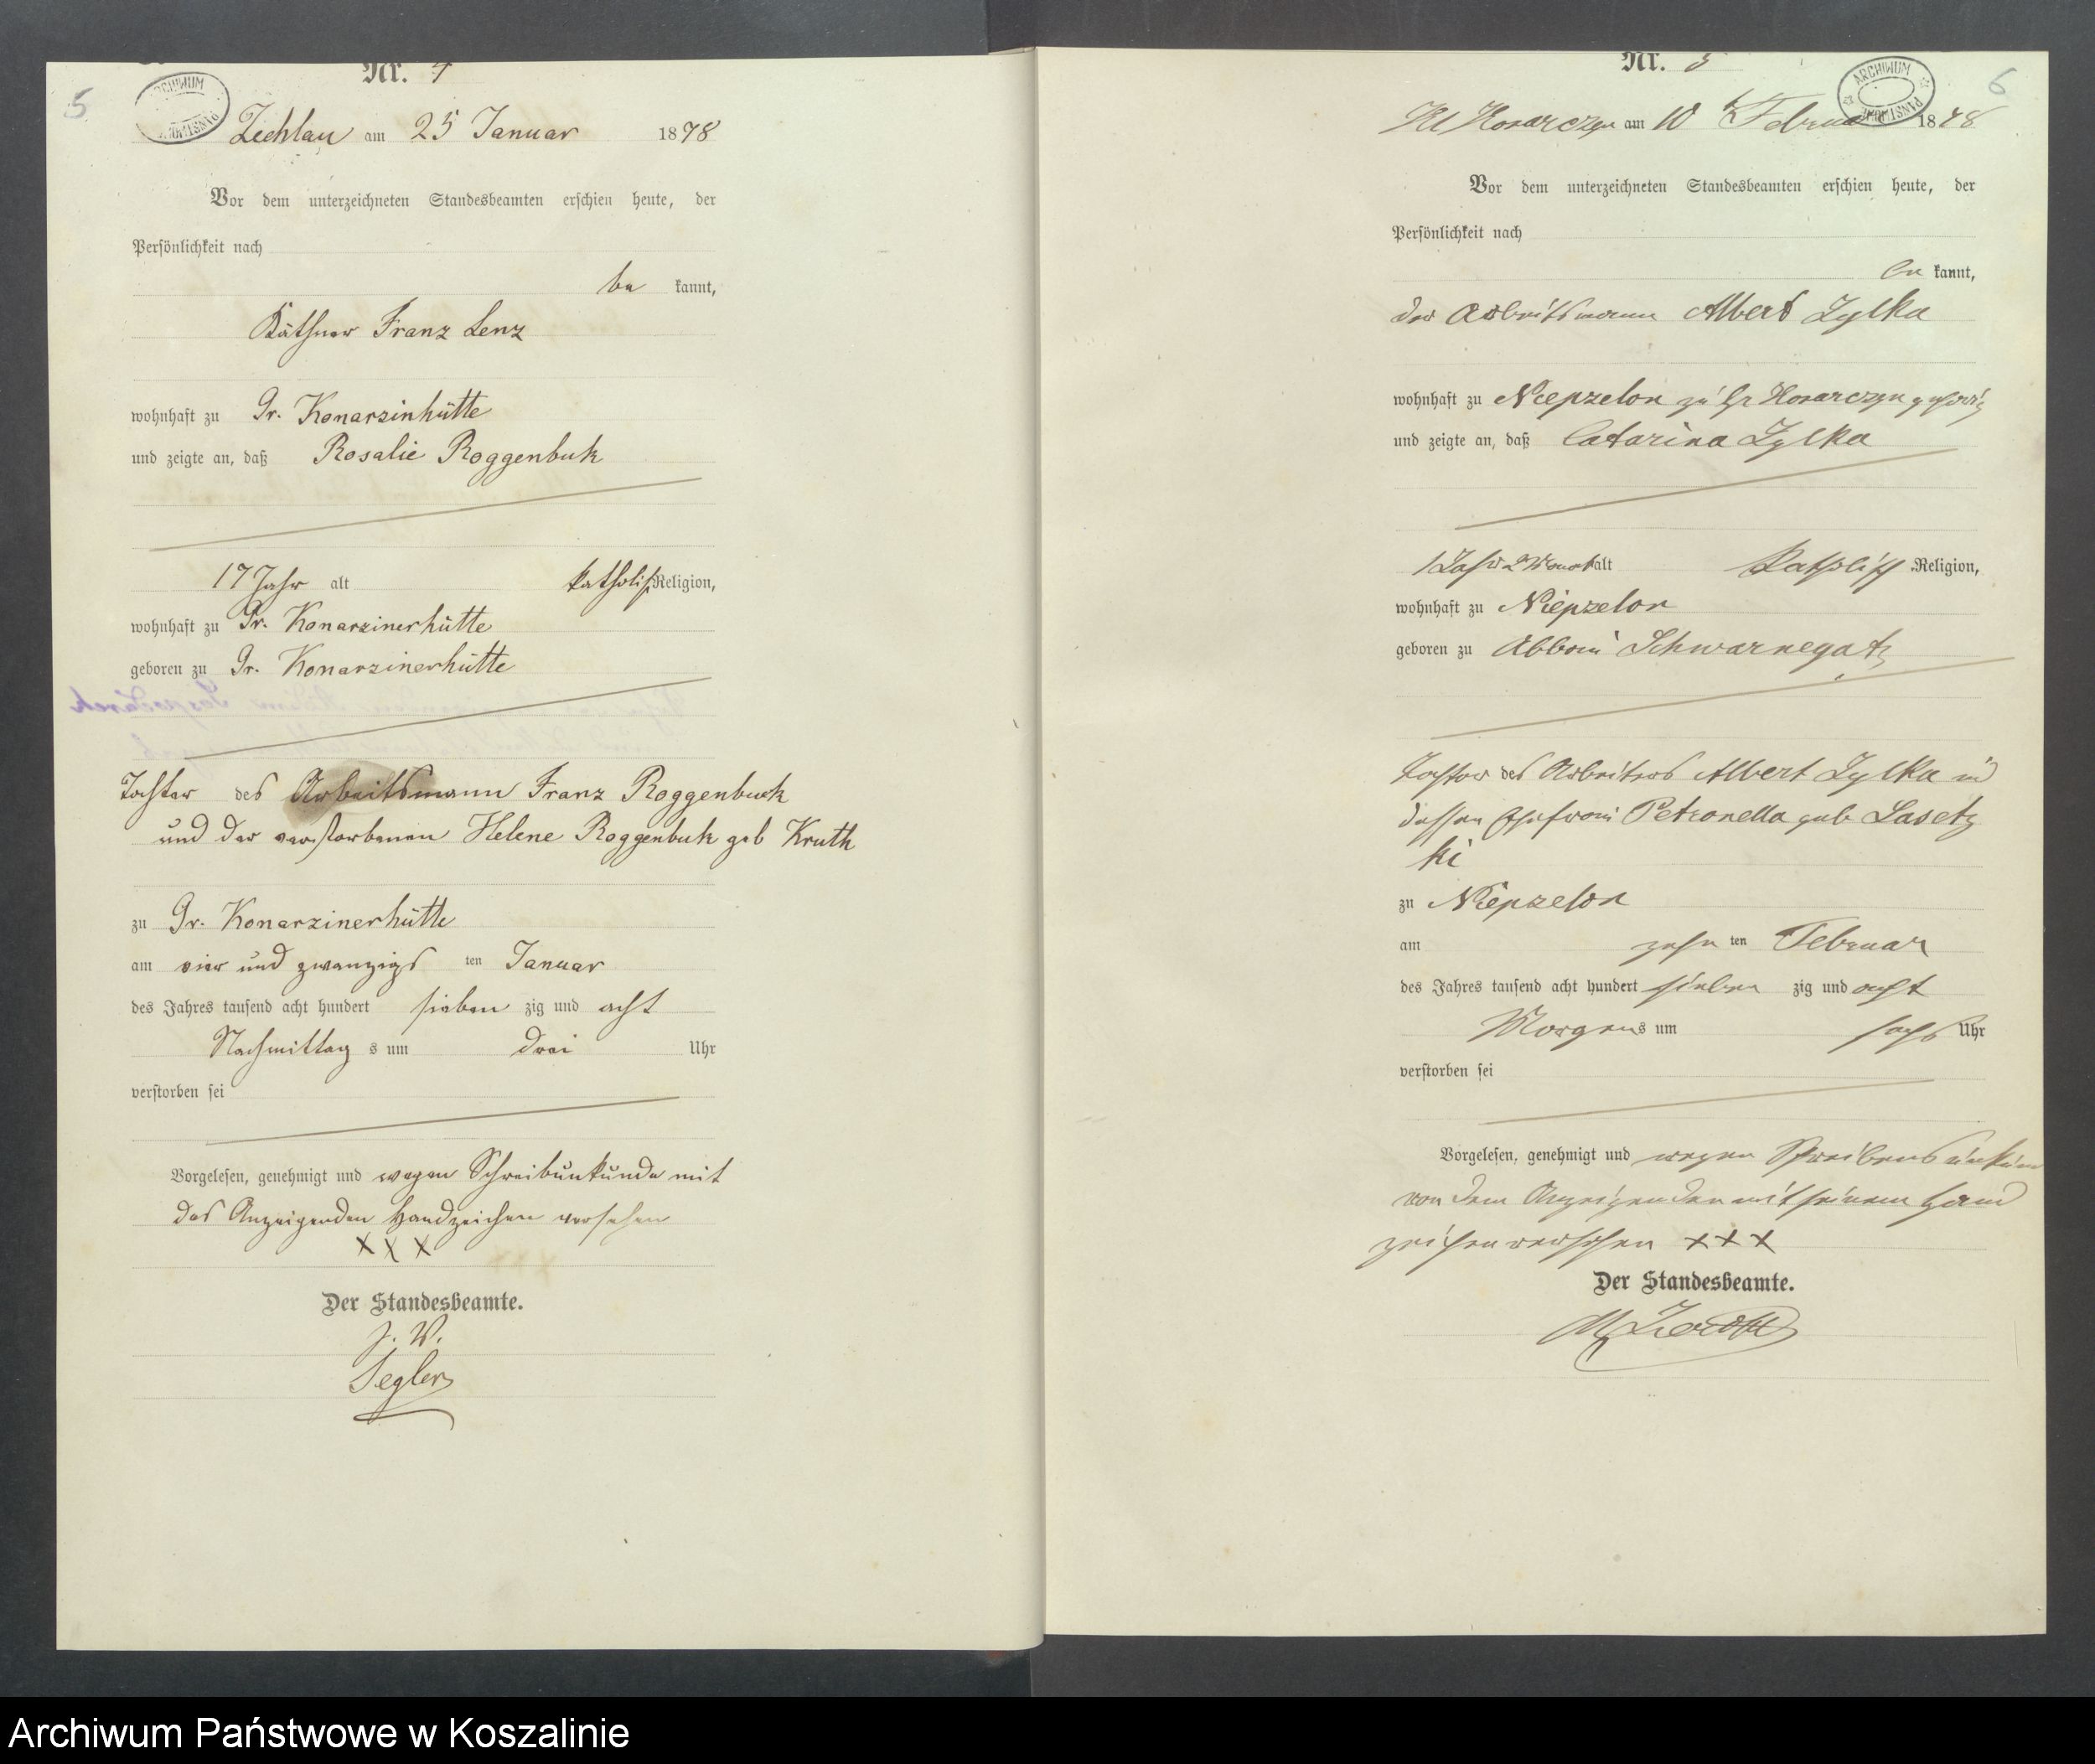 5
ARCHIWUM
Nr. 4
Zechlau am 25 Januar 1878
Vor dem unterzeichneten Standesbeamten erschien heute, der
Persönlichkeit nach
be kannt,
Käthner Franz Lenz
wohnhaft zu Gr. Konarzinhütte
und zeigte an, daß Rosalie Roggenbuk
17 Jahr alt katholisch Religion,
wohnhaft zu Gr. Konarzinerhütte
geboren zu Gr. Konarzinerhütte
Tochter des Arbeitsmann Franz Roggenbuck
und der verstorbenen Helene Roggenbuk geb Kruth
zu Gr. Konarzinerhütte
am vier und zwanzigs ten Januar
des Jahres tausend acht hundert sieben zig und acht
Nachmittag s um drei Uhr
verstorben sei
Vorgelesen, genehmigt und wegen Schreibunkunde mit
des Anzeigenden Handzeichen versehen
XXX
Der Standesbeamte.
J. V.
Segler
6
ARCHIWUM
Nr. 5
Kl Konarczyn am 10 t Februar 1878
Vor dem unterzeichneten Standesbeamten erschien heute, der
Persönlichkeit nach
be kannt,
der Arbeitsmann Albert Zylka
wohnhaft zu Niepzelon zu Gr Konarczyn gehörig
und zeigte an, daß Catarina Zylka
1 Jahr 2 Monat alt Katholisch Religion,
wohnhaft zu Niepzelon
geboren zu Abbau Schwarnegatz
Tochter des Arbeiters Albert Zylka u
dessen Ehefrau Petronella geb Lasetz
ki
zu Niepzelon
am zehn ten Februar
des Jahres tausend acht hundert sieben zig und acht
Morgens um sechs Uhr
verstorben sei
Vorgelesen, genehmigt und wegen Schreibens
von dem Anzeigenden mit seinem Hand
zeichen versehen XXX
Der Standesbeamte.
Archiwum Państwowe w Koszalinie